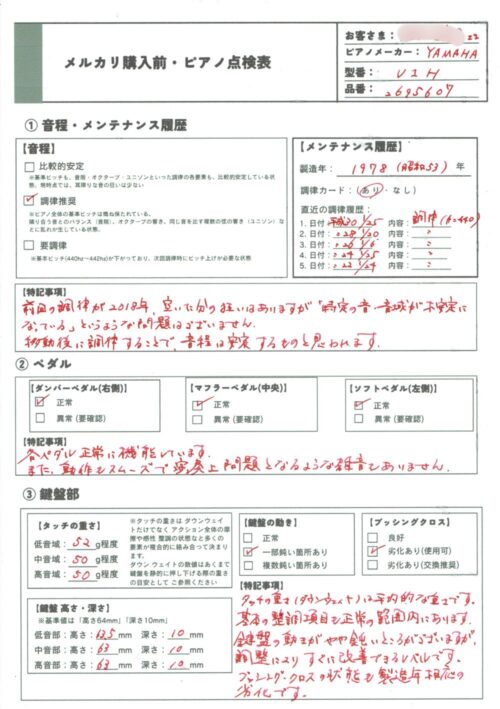 メルカリ購入前・ピアノ点検表
お客さま：
ピアノメーカー： YAMAHA
型番： U1H
品番： 2695607
① 音程・メンテナンス履歴
【音程】
比較的安定
※基本ピッチも、音程・オクターブ・ユニゾンといった調律の各要素も、比較的安定している状態。現時点では、耳障りな音の狂いは少ない
調律推奨
※ピアノ全体の基本ピッチは概ね保たれている。
隣り合う音とのバランス（音程）、オクターブの響き、同じ音を出す複数の弦の響き（ユニゾン）などに乱れが生じている状態。
要調律
※基本ピッチ(440hz～442hz)が下がっており、次回調律時にピッチ上げが必要な状態
【メンテナンス履歴】
製造年： 1978（昭和53） 年
調律カード：（あり・なし）
直近の調律履歴：
1. 日付：平成30 1/25 内容：調律(A=440)
2. 日付：〃28 1/20 内容： 〃
3. 日付：〃26 1/6 内容： 〃
4. 日付：〃24 1/25 内容： 〃
5. 日付：〃22 1/24 内容： 〃
【特記事項】
前回の調律が2018年、空いた分の狂いはありますが「特定の音・音域が不安定に
なっている」というような問題はございません。
移動後に調律することで、音程は安定するものと思われます。
② ペダル
【ダンパーペダル(右側)】
正常
異常（要確認）
【マフラーペダル(中央)】
正常
異常（要確認）
【ソフトペダル(左側)】
正常
異常（要確認）
【特記事項】
各ペダル正常に機能しています。
また、動作もスムーズで演奏上問題となるような雑音もありません。
③ 鍵盤部
【タッチの重さ】
低音域：52 g程度
中音域：50 g程度
高音域：50 g程度
※タッチの重さは ダウンウェイトだけでなく アクション全体の摩擦や感性 整調の状態など多くの要素が複合的に絡み合って決まります。
ダウンウェイトの数値はあくまで鍵盤を静的に押し下げる際の重さの目安として ご参照ください
【鍵盤の動き】
正常
一部鈍い箇所あり
複数鈍い箇所あり
【ブッシングクロス】
良好
劣化あり(使用可)
劣化あり(交換推奨)
【鍵盤 高さ・深さ】
※基準値は「高さ64mm」「深さ10mm」
低音部：高さ：63.5mm 深さ：10 mm
中音部：高さ：63 mm 深さ：10 mm
高音部：高さ：63 mm 深さ：10 mm
【特記事項】
タッチの重さ（ダウンウェイト）は平均的な重さです。
基本の整調項目も正常の範囲内にあります。
鍵盤の動きがやや鈍いところがございますが、
調整によりすぐに改善できるレベルです。
ブッシングクロスの状態も製造年相応の
劣化です。